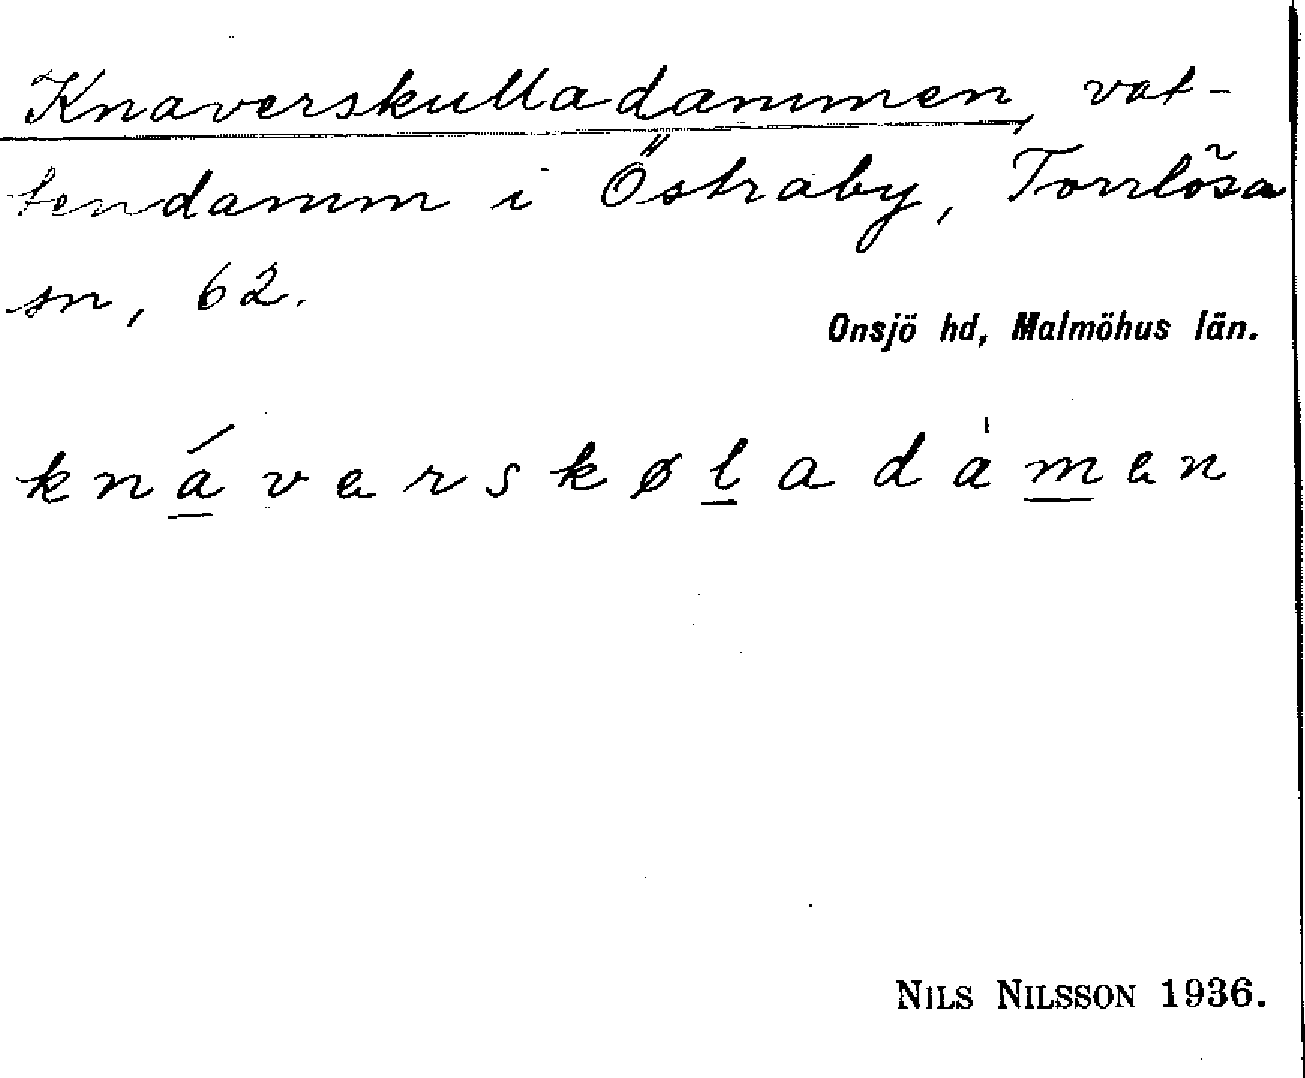 Knaverskulladammen, vat-
tendamm i Östraby, Torrlösa
sn, 62.
Onsjö hd, Malmöhus län.
knáverskøladàmen
NILS NILSSON 1936.